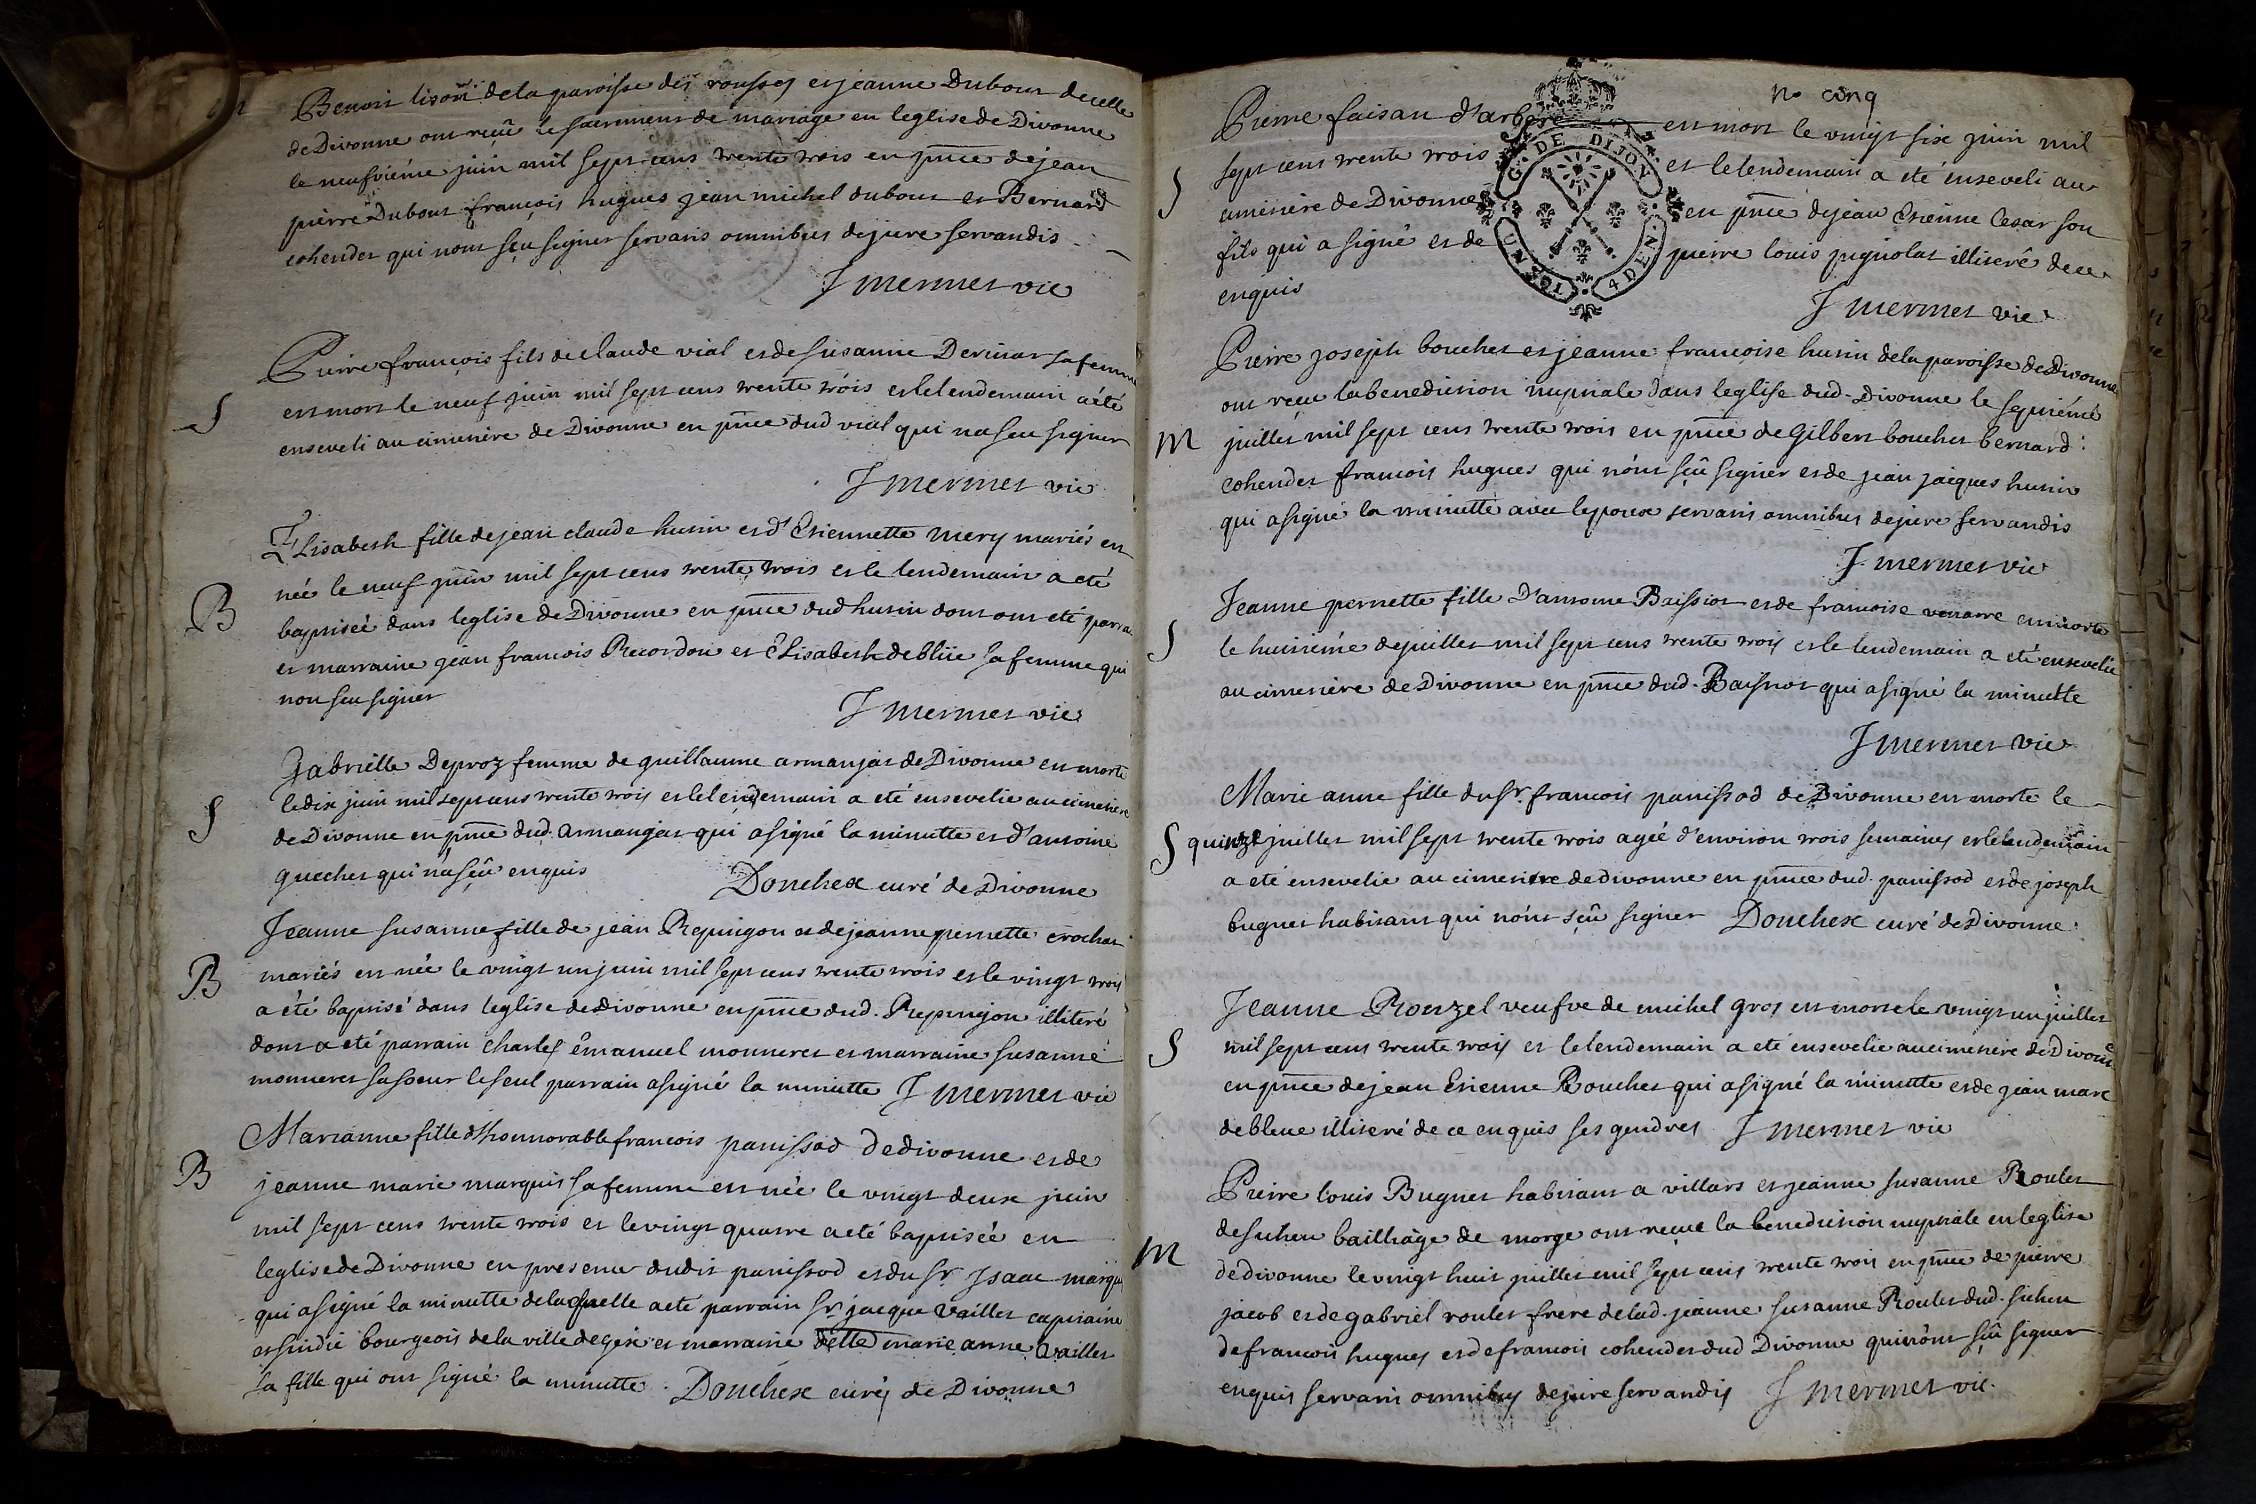 m
Benoit lison de la paroisse des rousses et jeanne Dubout de celle
de Divonne ont reçû le sacrement de mariage en leglise de Divonne
le neufviéme juin mil sept cens trente trois en pnce de jean
pierre Dubout françois hugues jean michel dubout et Bernard
cohendet qui nont sçu signer servatis omnibus de jure servandis
J mermet vic
Pierre françois fils de claude vial et de susanne Derinat sa femme
S
est mort le neuf juin mil sept cens trente trois et le lendemain a été
enseveli au cimetière de Divonne en pnce dud vial qui na seu signer
J mermet vic
Elisabeth fille de jean claude husin et d'Etiennette mery mariés est
née le neuf juin mil sept cens trente trois et le lendemain a eté
B
baptiseé dans leglise de Divonne en pnce dud husin dont ont eté parra
et marraine jean francois Recordon et Elisabeth deblüe sa femme qui
non seu signer
J mermet vic
Gabrielle Deproz femme de guillaume armanjat de Divonne est morte
S
le dix juin mil sept cens trente trois et le lendemain a eté ensevelie au cimetiere
de Divonne en pnce dud. armanjat qui a signé la minutte et d'antoine
quechet qui na sçû enquis
Douchex curé de Divonne
Jeanne susanne fille de jean Repingon et de jeanne pernette crochat
B
mariés est née le vingt un juin mil sept cens trente trois et le vingt trois
a été baptisé dans leglise de divonne en pnce dud. Repingon illiteré
dont a eté parrain charles emanuel monneret et marraine susanne
monneret sa soeur le seul parrain a signé la minutte J mermet vic
Marianne fille d'honnorable francois panissod de divonne et de
B
jeanne marie marquis sa femme est née le vingt deux juin
mil sept cens trente trois et le vingt quatre a eté baptiseé en
leglise de Divonne en presence dudit panissod et du sr. Isaac marquis
qui a signé la minutte de laquelle a eté parrain sr. jacque vaillet capitaine
et sindic bourgeois de la ville de gex et marraine delle marie anne vaillet
sa fille qui ont signé la minutte. Douchex curé de Divonne
no cinq
G. DE DIJON
4 DEN.
Pierre faisan d'arbere est mort le vingt six juin mil
S
sept cens trente trois et le lendemain a eté enseveli au
cimetière de Divonne en pnce de jean Etienne Cesar son
fils qui a signé et de pierre louis pigniolat illiteré de ce
enquis
J mermet vic
Pierre joseph bouchet et jeanne francoise husin de la paroisse de Divonne
ont reçu la benediction nuptiale dans leglise dud. Divonne le septiémé
m
juillet mil sept cens trente trois en pnce de Gilbert bouchet bernard
cohendet francois hugues qui nónt sçû signer et de jean jacques husin
qui a signé la minutte avec lepoux servatis omnibus de jure servandis
J. mermet vic
Jeanne pernette fille d'antoine Baissiot et de francoise est morte
S
le huitiémé de juillet mil sept cens trente trois et le lendemain a eté ensevelie
au cimetière de Divonne en pnce dud. Baissiot qui a signé la minutte
J mermet vic
Marie anne fille du Sr. francois panissod de Divonne est morte le
S
quinze juillet mil sept trente trois ageé d'environ trois semaines et le lendemain
a eté ensevelie au cimetiere de divonne en pnce dud. panissod et de joseph
bugnet habitant qui nónt sçû signer Douchex curé de Divonne
Jeanne Ronzel veufve de michel gros est morte le vingt un juillet
S
mil sept cens trente trois et le lendemain a eté ensevelie au cimetière de Divonne
en pnce de jean Etienne Bouchet qui a signé la minutte et de jean marc
deblue illiteré de ce enquis ses gendres J mermet vic
Pierre louis Bugnet habitant a villars et jeanne susanne Roulet
de suheu bailliage de morge ont reçue la benediction nuptiale en leglise
m
de divonne le vingt huit juillet mil sept cens trente trois en pnce de pierre
jacob et de gabriel roulet frere de lad. jeanne susanne Roulet dud. suheu
de francois hugues et de francois cohendet dud Divonne qui nónt sçû signer
enquis servatis omnibus de jure servandis J mermet vic.